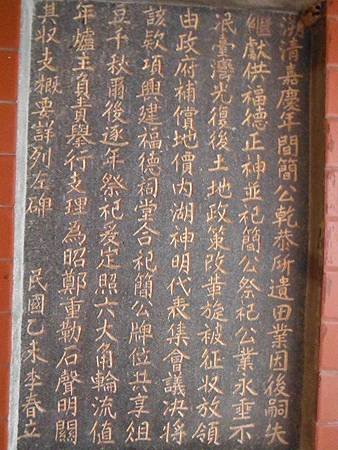 溯清嘉慶年間簡公乾恭所遺田業因後嗣失
繼獻供福德正神並祀簡公祭祀公業永垂不
泯臺灣光復後土地政策改革旋被征收放領
由政府補償地價內湖神明代表集會議決將
該款項興建福德祠堂合祀簡公牌位共享俎
豆千秋爾後逐年祭祀爰定照六大角輪流值
年爐主負責舉行支理為昭鄭重勒石聲明關
其收支概要詳列左碑 民國乙未李春立